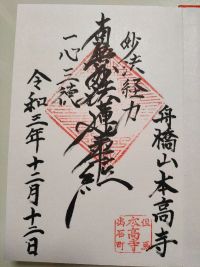 舟橋山本高寺
妙法経力
南無妙法蓮華経
一心三徳
令和三年十二月十二日
但馬
本高寺
出石町